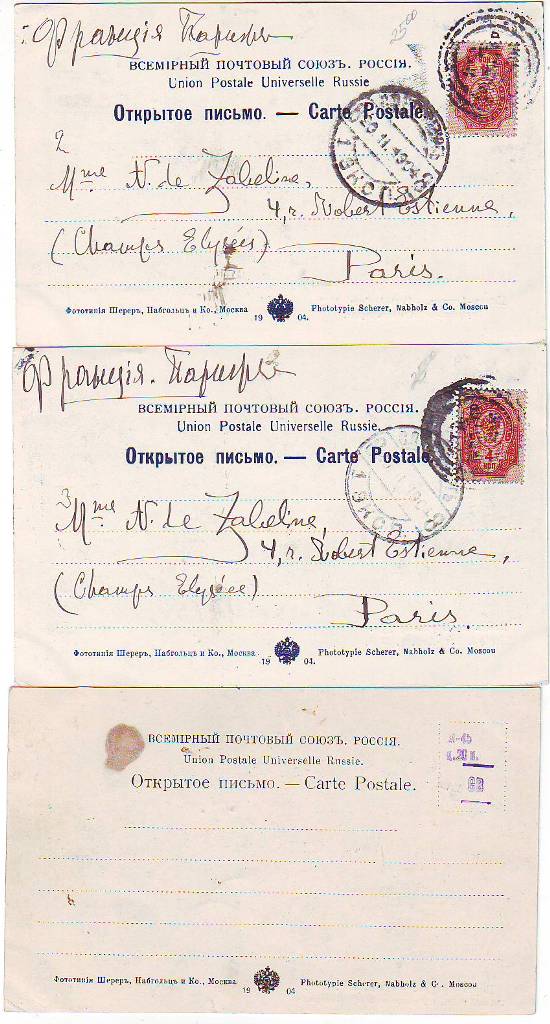 Франція Парижъ
2500
ВСЕМІРНЫЙ ПОЧТОВЫЙ СОЮЗЪ. РОССІЯ.
Union Postale Universelle Russie
Открытое письмо. — Carte Postale.
2
Mme N. de Zabeline,
4, r. Robert Estienne,
(Champs Elysées)
Paris.
Фототипія Шереръ, Набгольцъ и Ко., Москва 1904. Phototypie Scherer, Nabholz & Co. Moscou
Франція. Парижъ
2500
ВСЕМІРНЫЙ ПОЧТОВЫЙ СОЮЗЪ. РОССІЯ.
Union Postale Universelle Russie.
Открытое письмо. — Carte Postale
3
Mme N. de Zabeline,
4, r. Robert Estienne,
(Champs Elysée)
Paris.
Фототипія Шереръ, Набгольцъ и Ко., Москва 1904. Phototypie Scherer, Nabholz & Co. Moscou
ВСЕМІРНЫЙ ПОЧТОВЫЙ СОЮЗЪ. РОССІЯ.
Union Postale Universelle Russie.
Открытое письмо. — Carte Postale.
Фототипія Шереръ, Набгольцъ и Ко., Москва 1904 Phototypie Scherer, Nabholz & Co. Moscou